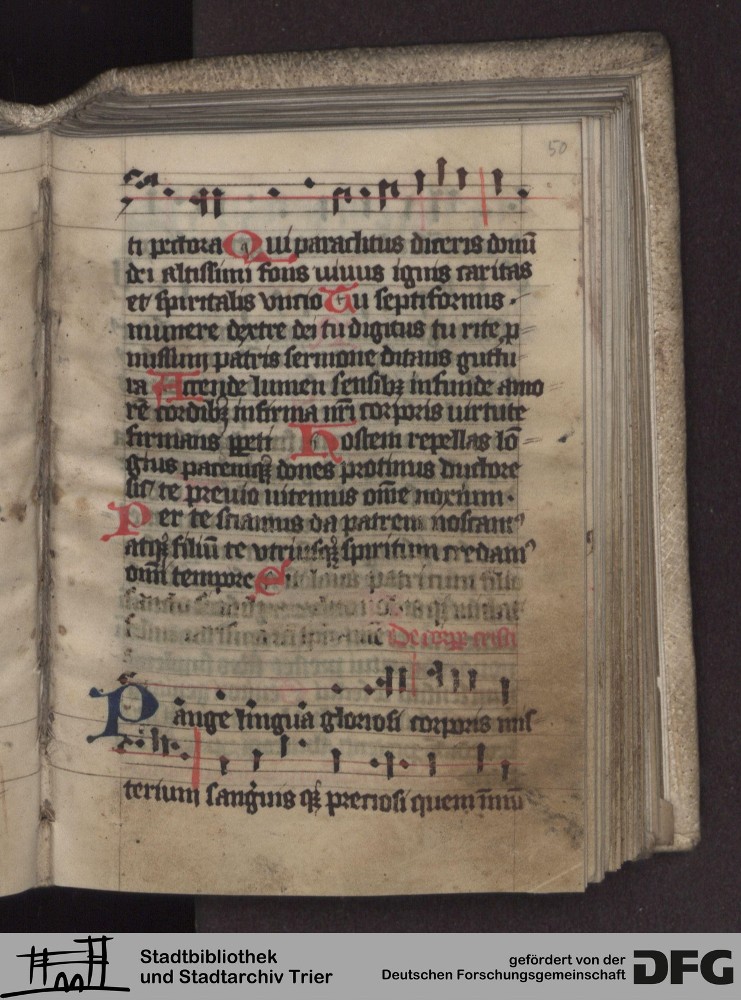 50
ti pectora Qui paraclitus diceris donū
dei altissimi fons uiuus ignis caritas
et spiritalis vnctio Tu septiformis
munere dextre dei tu digitus tu rite ꝓ
missum patris sermone ditans guttu
ra Accende lumen sensibꝫ infunde amo
rē cordibꝫ infirma nr̄i corporis uirtute
firmans ꝑpeti Hostem repellas lō
gius pacemqꝫ dones protinus ductore
sic te preuio uitemus om̄e noxium
Per te sciamus da patrem noscamꝰ
atqꝫ filiū te vtriusqꝫ spiritum credamꝰ
om̄i tempore
patri cum filio
De corꝑe cristi
Pange lingua gloriosi corporis mis
terium sanguis qꝫ preciosi quem
Stadtbibliothek
und Stadtarchiv Trier
gefördert von der
Deutschen Forschungsgemeinschaft
DFG